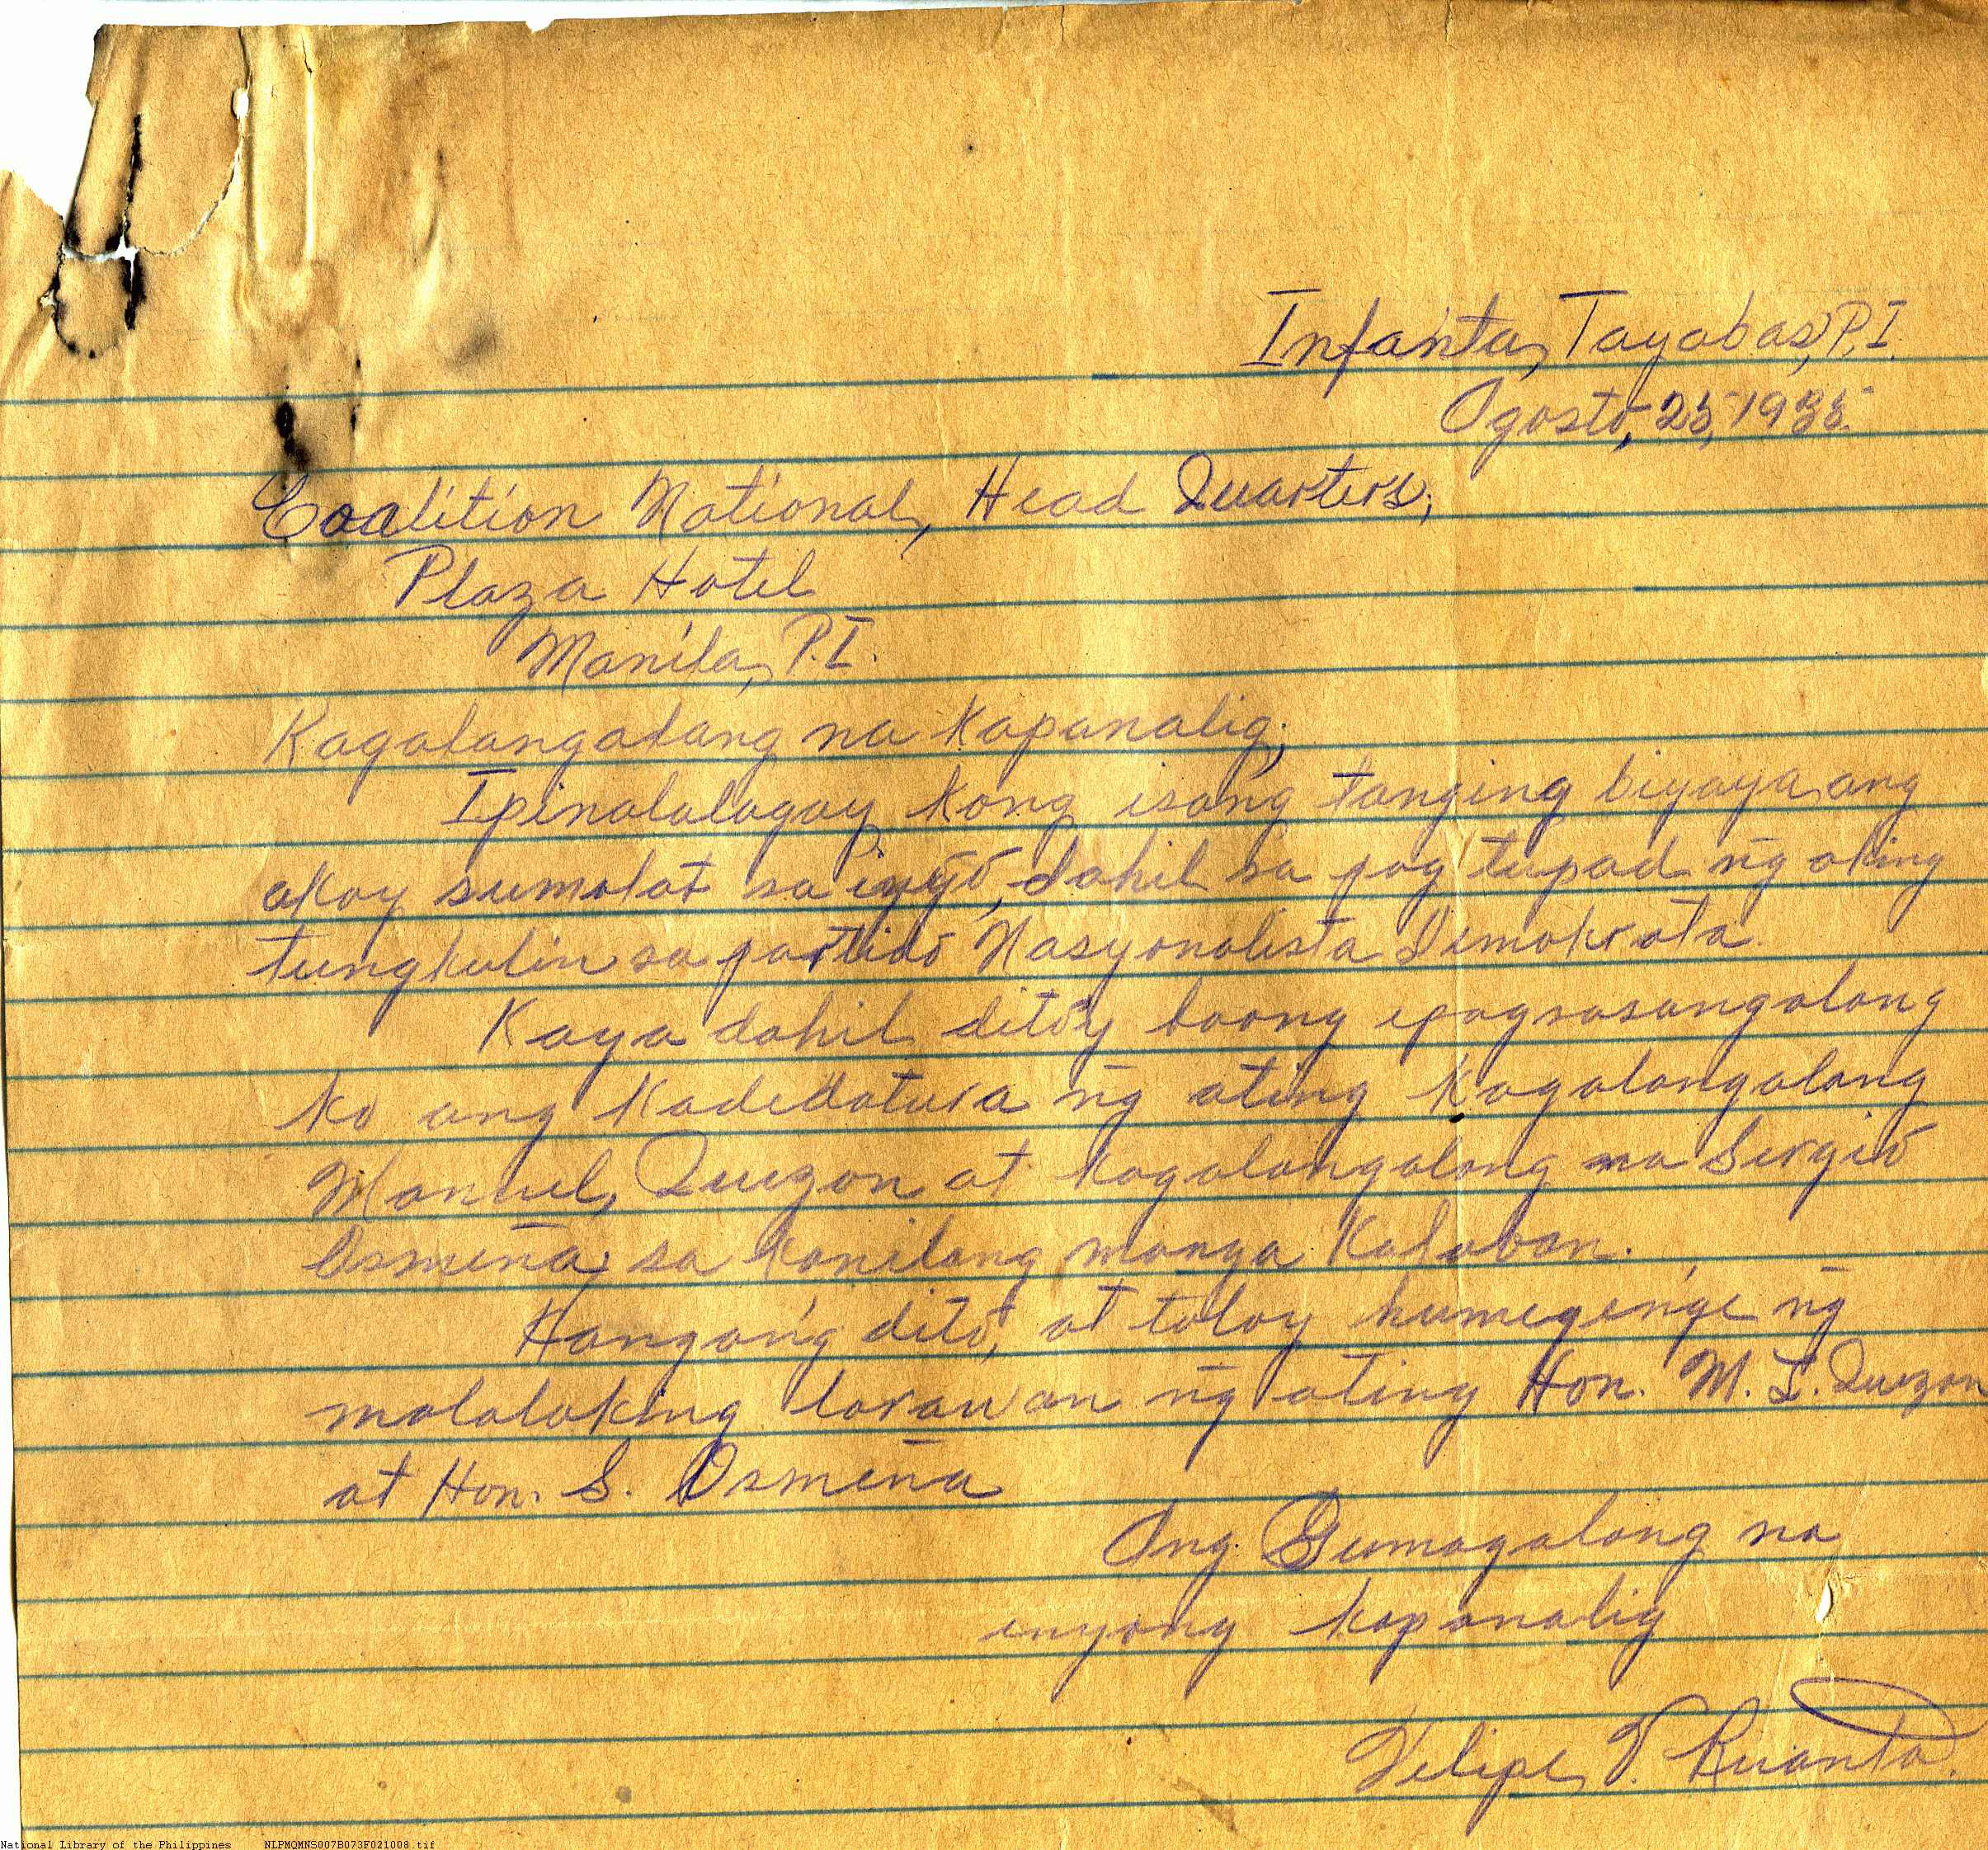 Infanta, Tayabas, P.I.
Agosto, 25, 1935.
Coalition National, Head Quarters,
Plaza Hotel
Manila, P.I.
Kagalangalang na kapanalig;
Ipinalalagay kong isang tanging biyaya, ang
akoy sumulat sa iyyó, dahil sa pag tupad ng̃ aking
tungkulin sa partido Nasyonalista Demokrata.
Kaya dahil ditóy boong ipagsasangalang
ko ang kadedatura ng̃ ating kagalangalang
Manuel, Quezon at kagalangalang na Sergio
Osmeña, sa kanilang manga kalaban.
Hangang dito, at tuloy humegenge ng̃
malalaking larawan ng̃ ating Hon. M. L. Quezon
at Hon. S. Osmeña
Ang Gumagalang na
inyong kapanalig
Felipe, V. Ruanto.
National Library of the Philippines NLPMQMNS007B073F021008.tif